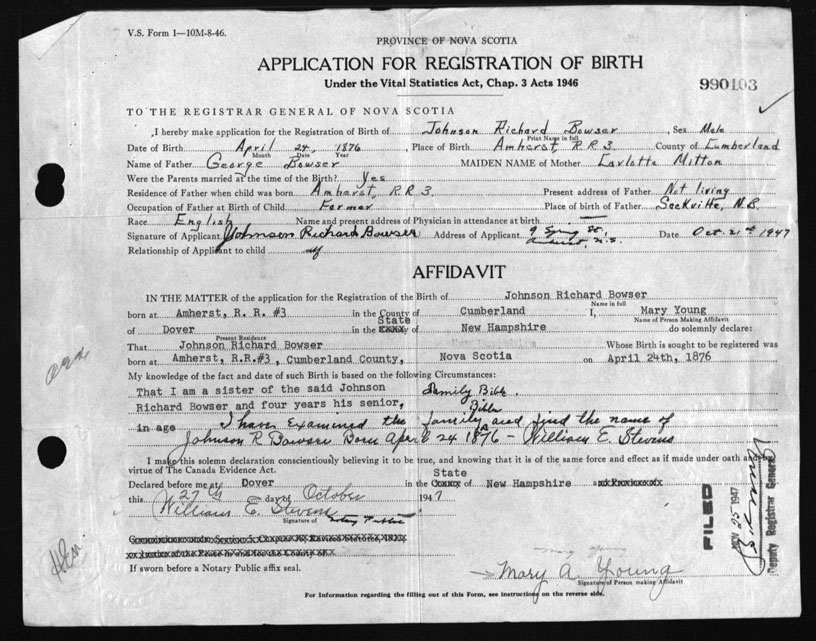 V.S. Form 1—10M-8-46.
PROVINCE OF NOVA SCOTIA
APPLICATION FOR REGISTRATION OF BIRTH
Under the Vital Statistics Act, Chap. 3 Acts 1946
990103
TO THE REGISTRAR GENERAL OF NOVA SCOTIA
I hereby make application for the Registration of Birth of Johnson Richard Bowser, Sex Male
Print Name in full
Date of Birth April 24, 1876, Place of Birth Amherst, R.R.3. County of Cumberland
Month Date Year
Name of Father George Bowser MAIDEN NAME of Mother Carlotta Mitton
Were the Parents married at the time of the Birth? Yes
Residence of Father when child was born Amherst, R.R.3. Present address of Father Not living
Occupation of Father at Birth of Child Farmer Place of birth of Father Sackville, N.B.
Race English Name and present address of Physician in attendance at birth —
Signature of Applicant Johnson Richard Bowser Address of Applicant 9 Spring St., Amherst, N.S. Date Oct. 21st 1947
Relationship of Applicant to child
AFFIDAVIT
IN THE MATTER of the application for the Registration of the Birth of Johnson Richard Bowser
Name in full
born at Amherst, R. R. #3 in the County of Cumberland I, Mary Young
Name of Person Making Affidavit
of Dover in the State of New Hampshire do solemnly declare:
Present Residence
That Johnson Richard Bowser Whose Birth is sought to be registered was
born at Amherst, R.R.#3, Cumberland County, Nova Scotia on April 24th, 1876
My knowledge of the fact and date of such Birth is based on the following Circumstances:
That I am a sister of the said Johnson Family Bible.
Richard Bowser and four years his senior,
in age I have examined the family Bible and find the name of
Johnson R. Bowser Born April 24 1876 – William E. Stevens
I make this solemn declaration conscientiously believing it to be true, and knowing that it is of the same force and effect as if made under oath and by
virtue of The Canada Evidence Act.
Declared before me at Dover in the State of New Hampshire
this 27th day of October 1947
William E. Stevens
Signature of Notary Public
If sworn before a Notary Public affix seal.
Mary A. Young
Signature of Person making Affidavit
For Information regarding the filling out of this Form, see instructions on the reverse side.
FILED
25 1947
Deputy Registrar General